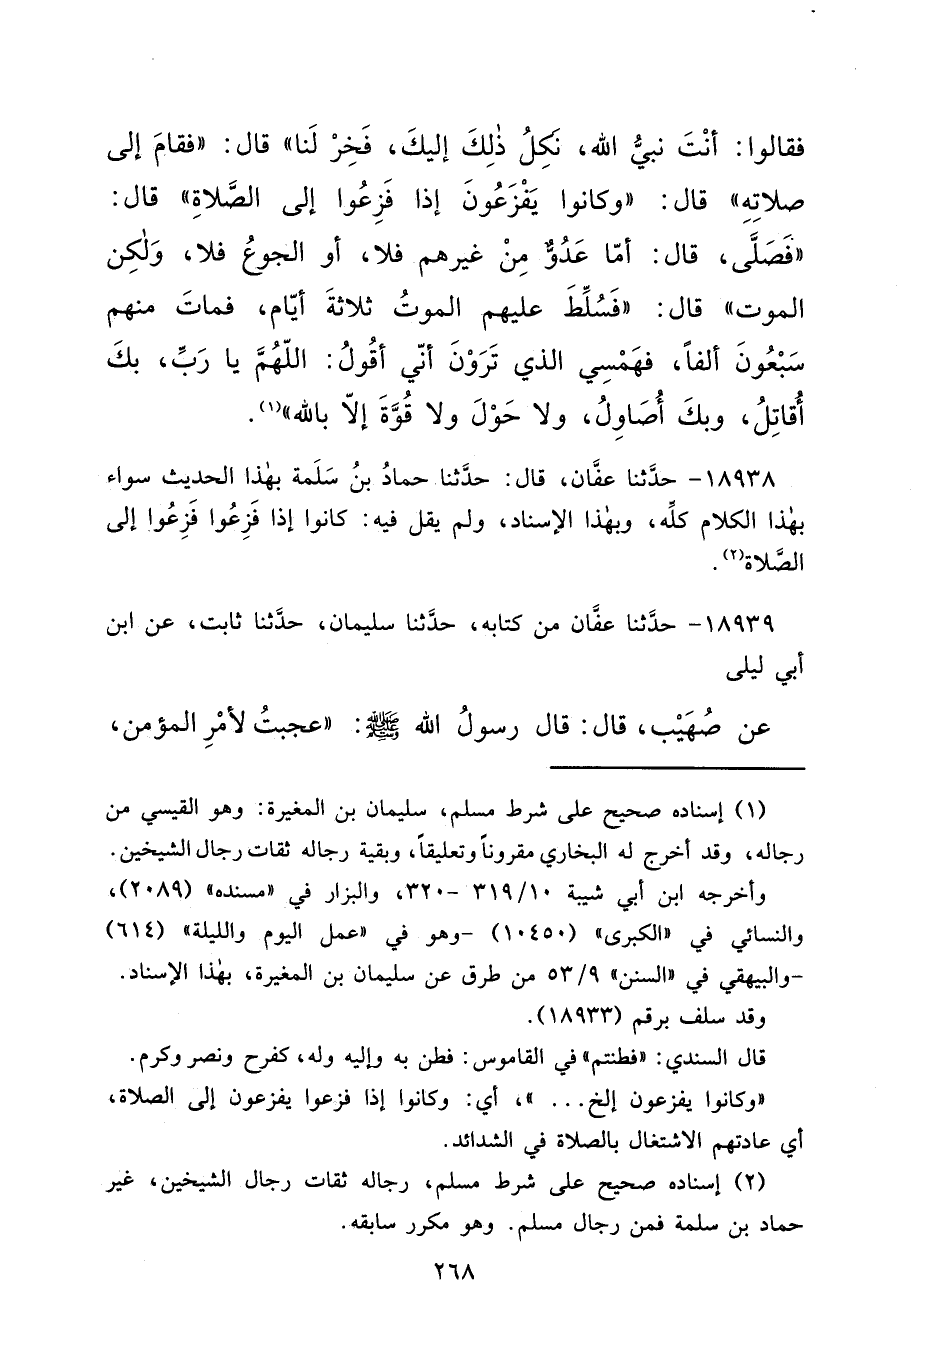 فقالوا: أنْتَ نبيُّ الله، نَكِلُ ذٰلِكَ إليكَ، فَخِرْ لَنا» قال: «فقامَ إلى
صلاتِهِ» قال: «وكانوا يَفْزَعُونَ إذا فَزِعُوا إلى الصَّلاةِ» قال:
«فَصَلَّى، قال: أمّا عَدُوٌّ مِنْ غيرهم فلا، أو الجوعُ فلا، وَلٰكِن
الموت» قال: «فَسُلِّطَ عليهم الموتُ ثلاثةَ أيّام، فماتَ منهم
سَبْعُونَ ألفاً، فهَمْسِي الذي تَرَوْنَ أنّي أقُولُ: اللّهُمَّ يا رَبِّ، بكَ
أُقاتِلُ، وبكَ أُصَاوِلُ، ولا حَوْلَ ولا قُوَّةَ إلاّ بالله»(١).
١٨٩٣٨- حدَّثنا عفَّان، قال: حدَّثنا حمادُ بنُ سَلَمة بهٰذا الحديث سواء
بهٰذا الكلام كلِّه، وبهٰذا الإسناد، ولم يقل فيه: كانوا إذا فَزِعُوا فَزِعُوا إلى
الصَّلاة(٢).
١٨٩٣٩- حدَّثنا عفَّان من كتابه، حدَّثنا سليمان، حدَّثنا ثابت، عن ابن
أبي ليلى
عن صُهَيْب، قال: قال رسولُ الله ﷺ: «عجبتُ لأمْرِ المؤمن،
(١) إسناده صحيح على شرط مسلم، سليمان بن المغيرة: وهو القيسي من
رجاله، وقد أخرج له البخاري مقروناً وتعليقاً، وبقية رجاله ثقات رجال الشيخين.
وأخرجه ابن أبي شيبة ٣١٩/١٠ -٣٢٠، والبزار في «مسنده» (٢٠٨٩)،
والنسائي في «الكبرى» (١٠٤٥٠) -وهو في «عمل اليوم والليلة» (٦١٤)
-والبيهقي في «السنن» ٥٣/٩ من طرق عن سليمان بن المغيرة، بهٰذا الإسناد.
وقد سلف برقم (١٨٩٣٣).
قال السندي: «فطنتم» في القاموس: فطن به وإليه وله، كفرح ونصر وكرم.
«وكانوا يفزعون إلخ... »، أي: وكانوا إذا فزعوا يفزعون إلى الصلاة،
أي عادتهم الاشتغال بالصلاة في الشدائد.
(٢) إسناده صحيح على شرط مسلم، رجاله ثقات رجال الشيخين، غير
حماد بن سلمة فمن رجال مسلم. وهو مكرر سابقه.
٢٦٨